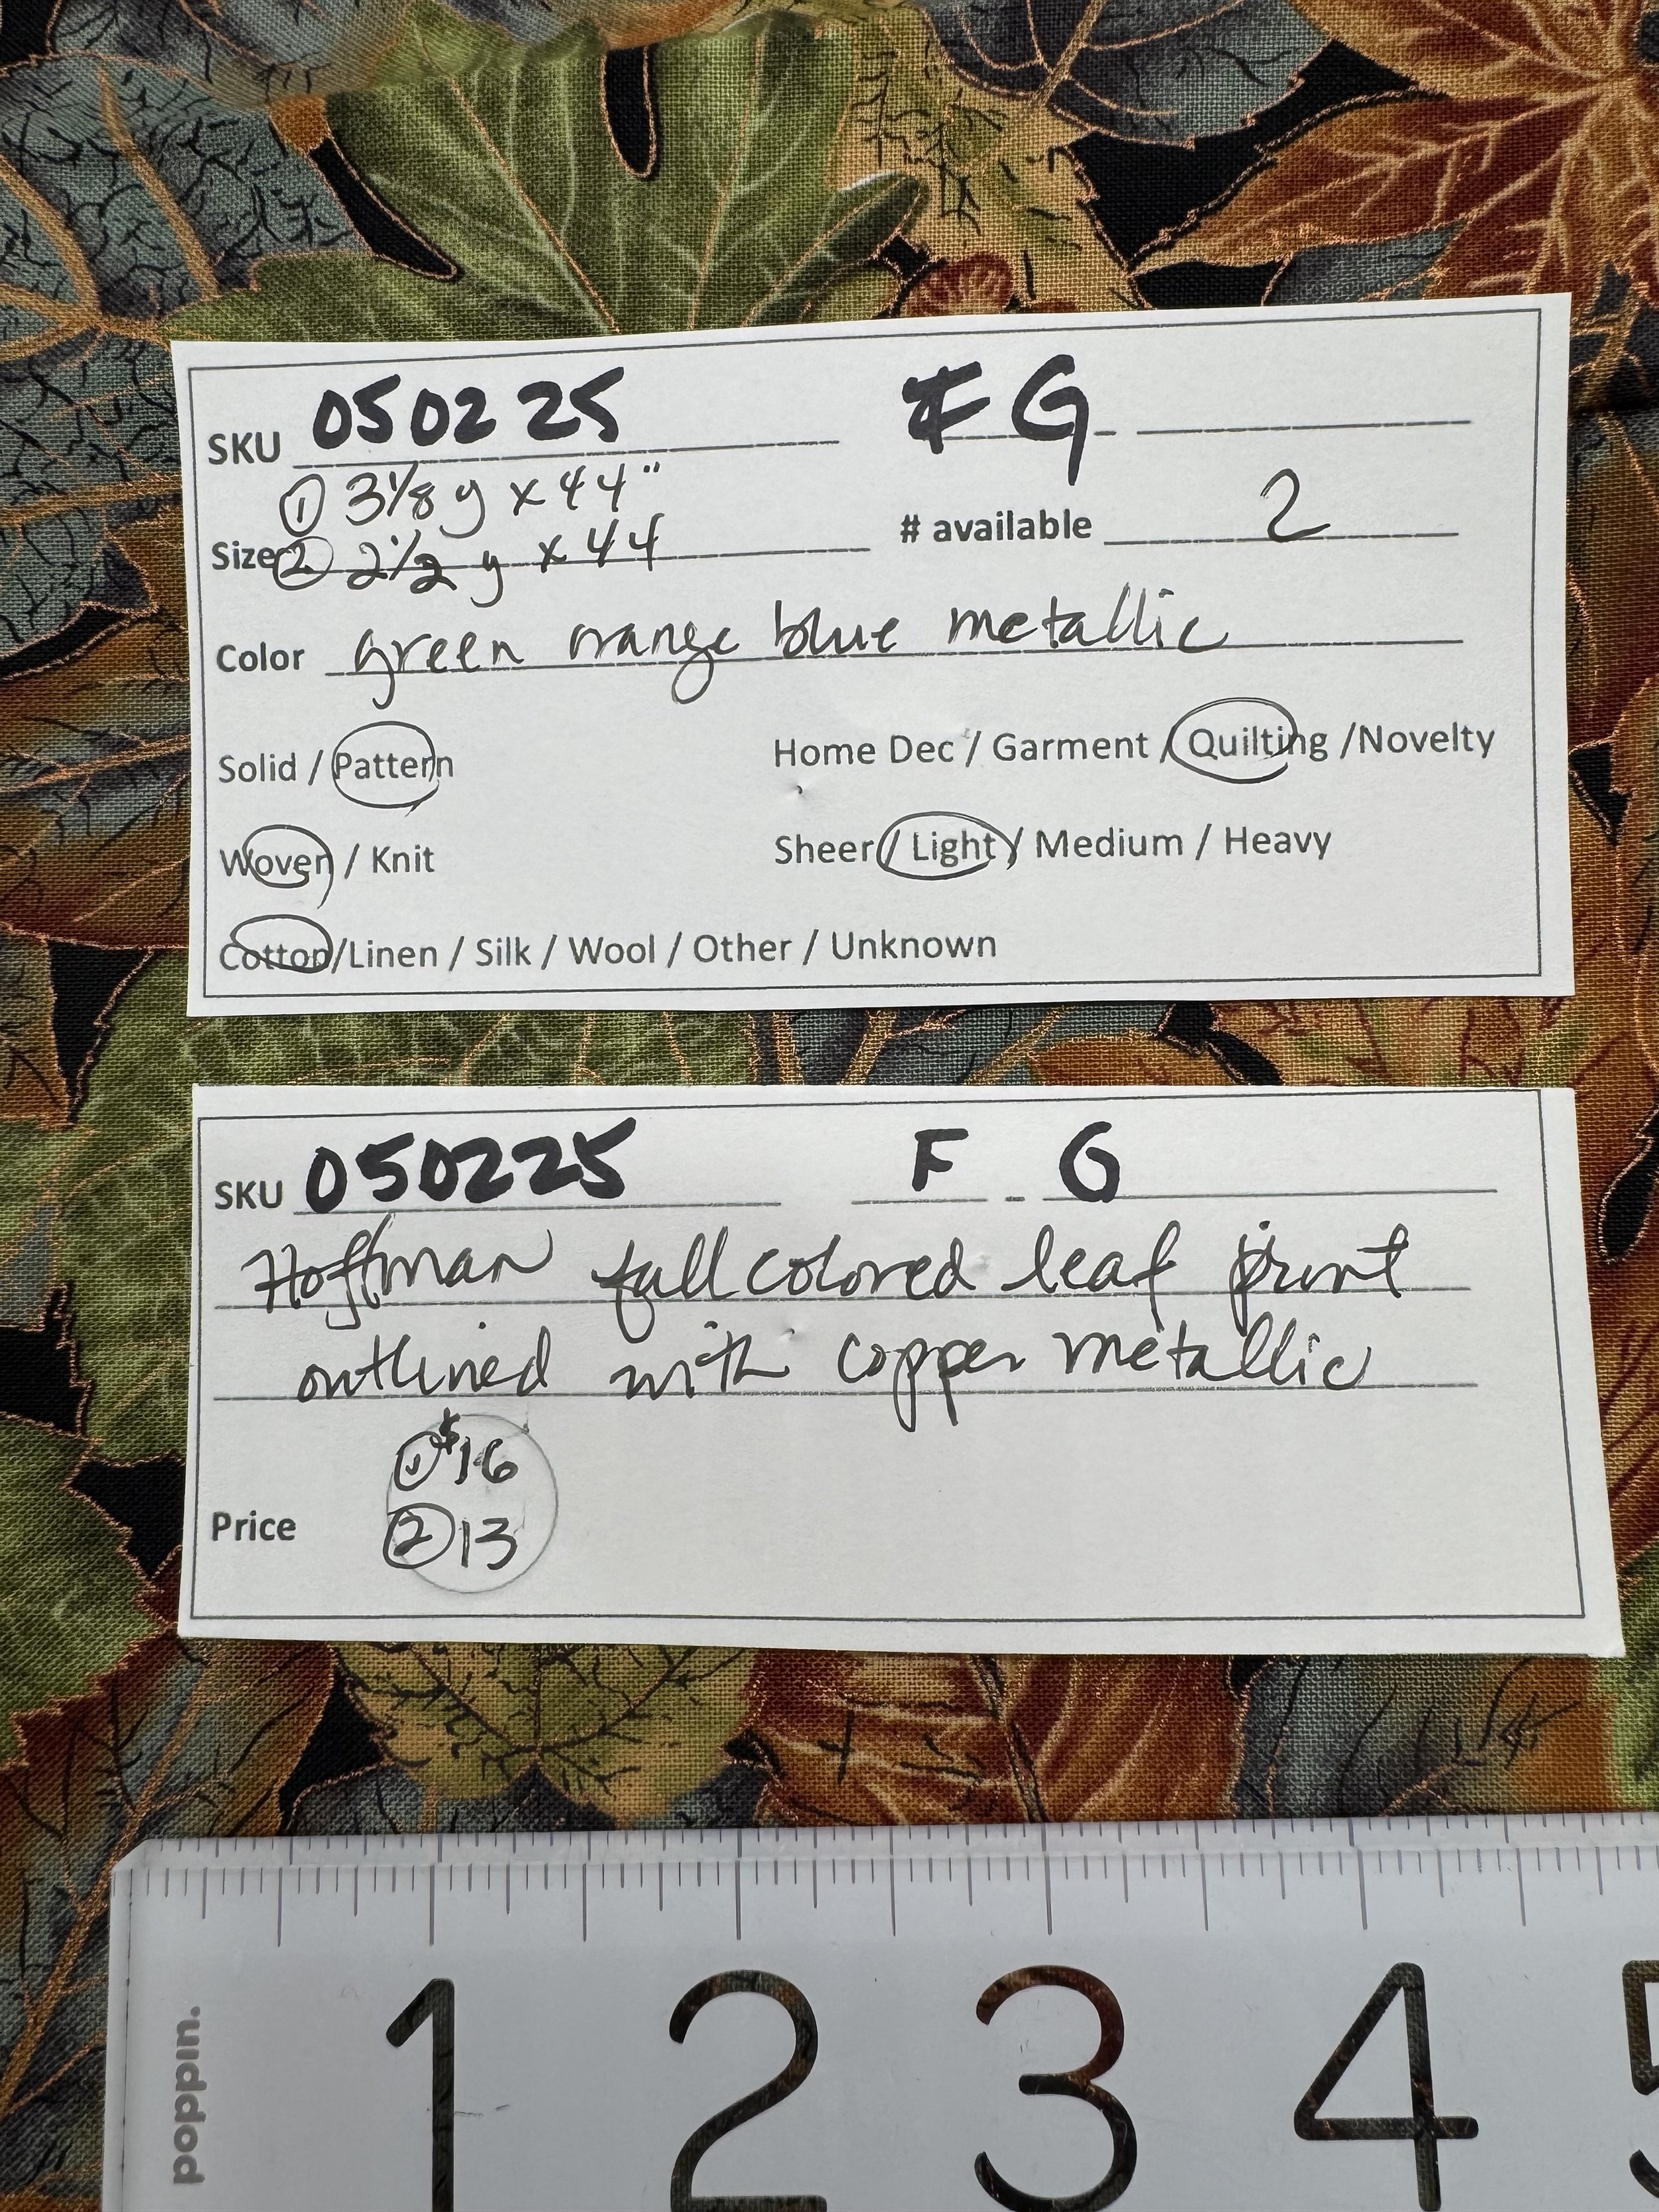 SKU 050225 F G
① 3 1/8 y x 44"
Size ② 2 1/2 y x 44
# available 2
Color green orange blue metallic
Solid / Pattern Home Dec / Garment / Quilting /Novelty
Woven / Knit Sheer / Light / Medium / Heavy
Cotton/Linen / Silk / Wool / Other / Unknown
SKU 050225 F - G
Hoffman fall colored leaf print
outlined with copper metallic
① $16
Price ② 13
1 2 3 4 5
poppin.